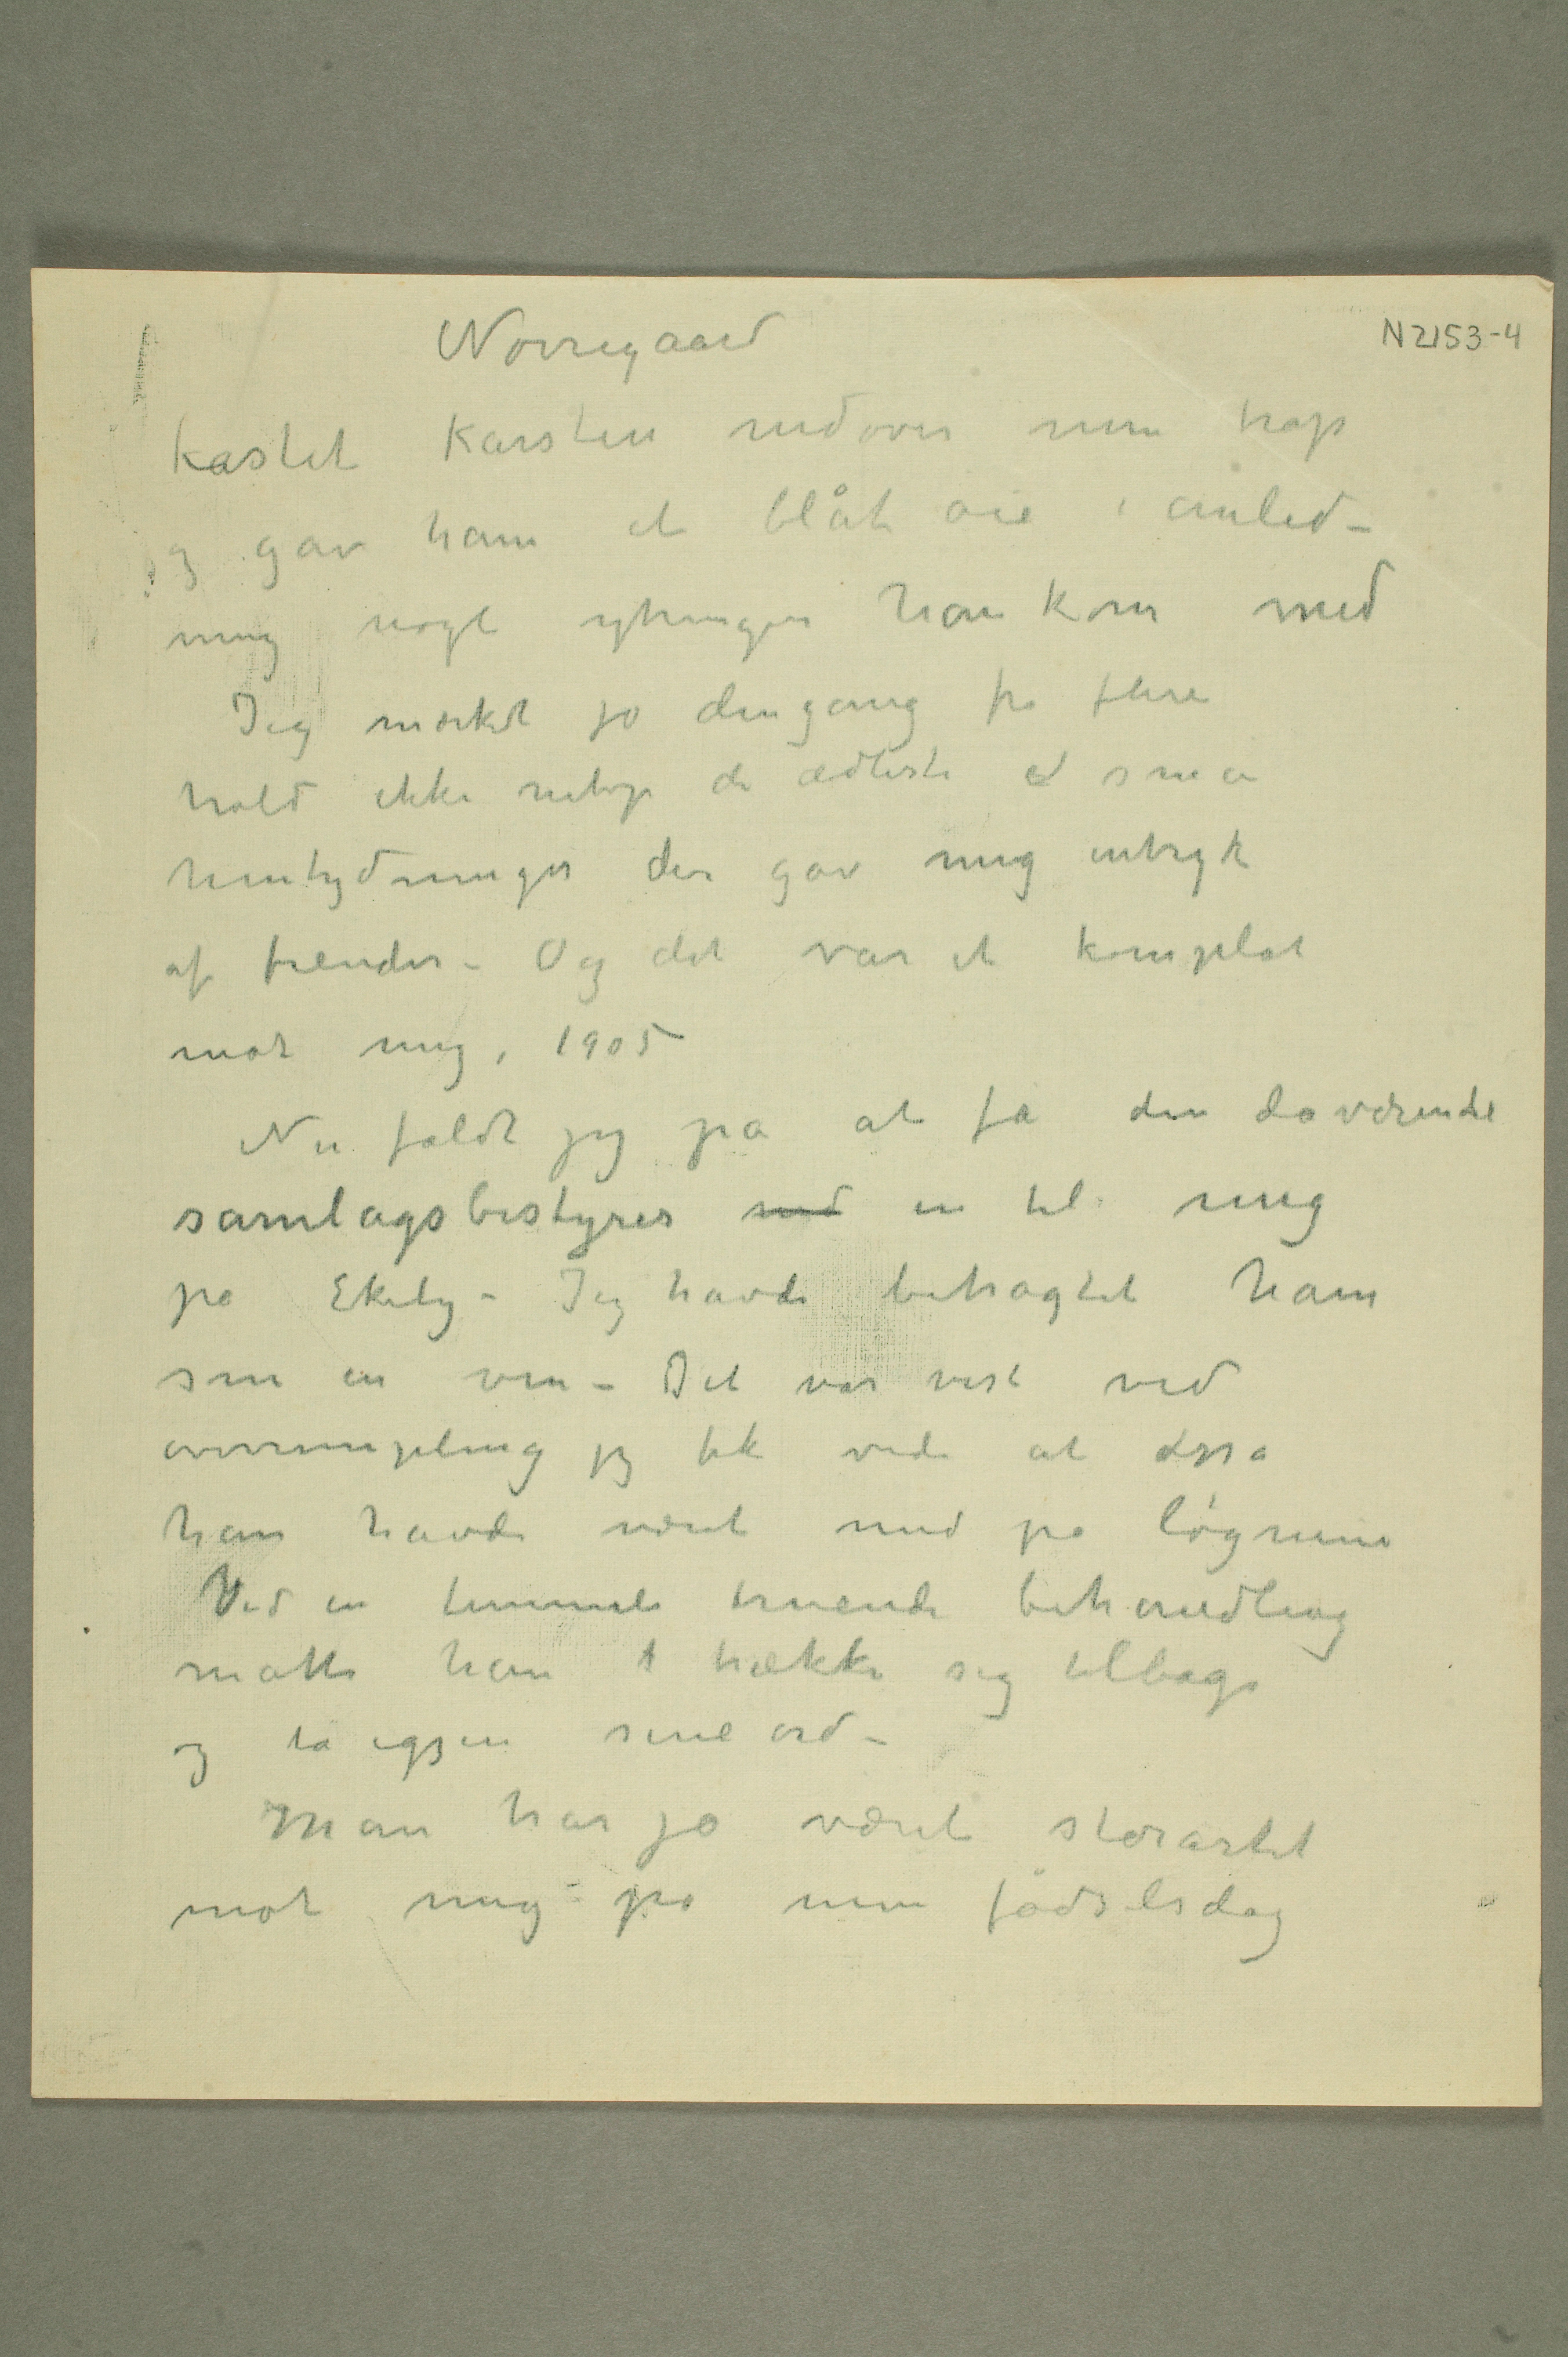 Nørregaard
N 2153-4
kastet Karsten nedover min trap
og gav ham et blåt øie i anled-
ning nogle ytringer han kom med
Jeg mærket jo dengang fra flere
hold ikke netop de ædleste små
hentydninger der gav mig intryk
af fiender – Og det var et komplot
mot mig, 1905
Nu faldt jeg på at få den daværende
samlagsbestyrer ind til mig
på Ekely – Jeg havde betragtet ham
som en ven – Det var vist ved
overrumpling jeg fik vide at også
han havde været med på løgnene
Ved en temmeli truende behandling
måtte han trække sig tilbage
og ta igjen sine ord –
Man har jo været storartet
mot mig på min fødselsdag